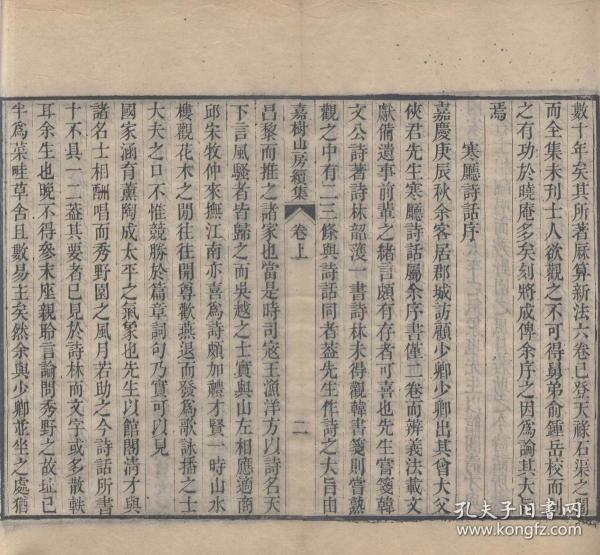 數十年矣其所著厤算新法六卷已登天祿石渠之閣
而全集未刊士人欲觀之不可得舅弟俞鍾岳校而刻
之有功於曉庵多矣刻將成俾余序之因爲論其大旨
焉
寒廳詩話序
嘉慶庚辰秋余客居郡城訪顧少卿少卿出其曾大父
俠君先生寒廳詩話屬余序書僅二卷而辨義法載文
獻備遺事前輩之緒言頗有存者可喜也先生嘗箋韓
文公詩著詩林韶濩一書詩林未得觀韓書箋則嘗熟
觀之中有二三條與詩話同者葢先生作詩之大旨由
嘉樹山房續集
卷上
二
昌黎而推之諸家也當是時司寇王漁洋方以詩名天
下言風騷者皆歸之而吳越之士實與山左相應適商
邱宋牧仲來撫江南亦喜爲詩頗加禮才賢一時山水
樓觀花木之閒往往開尊歡燕退而發爲歌詠播之士
大夫之口不惟競勝於篇章詞句乃實可以見
國家涵育薰陶成太平之氣象也先生以館閣清才與
諸名士相酬唱而秀野園之風月若助之今詩話所書
十不具一二葢其要者已見於詩林而文字或多散軼
耳余生也晚不得參末座親聆言論問秀野之故址已
半爲菜畦草舍且數易主矣然余與少卿並坐之處猶
孔夫子旧书网
www.kongfz.com